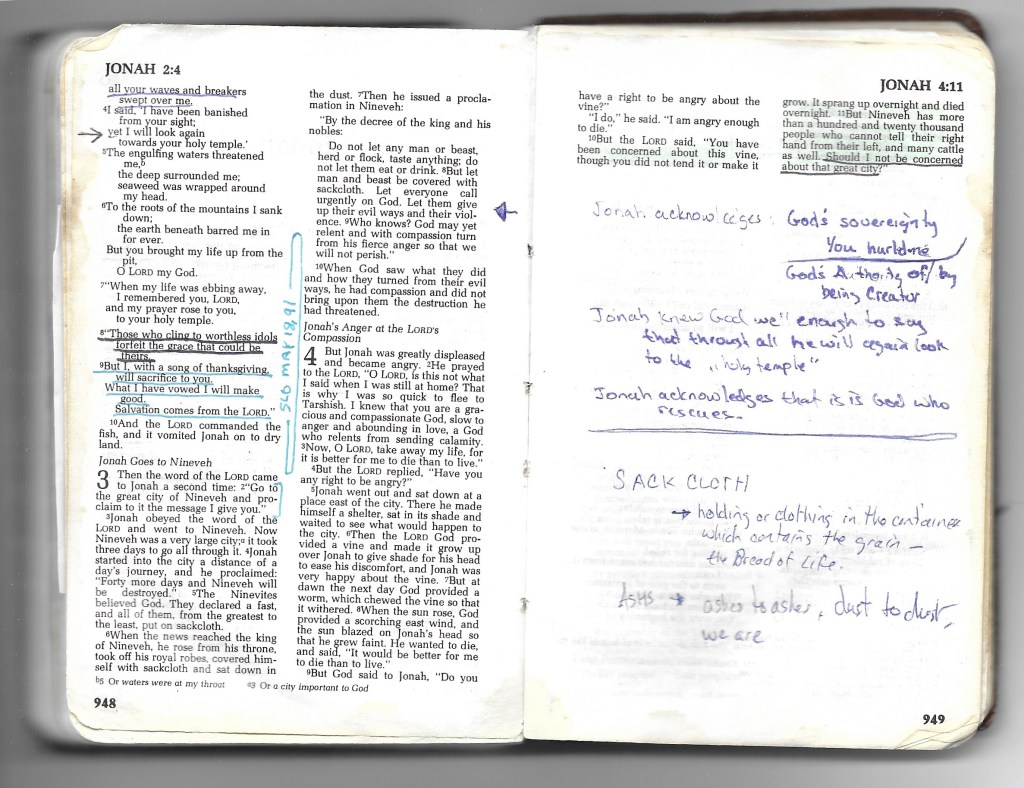 JONAH 2:4
all your waves and breakers
swept over me.
4I said, 'I have been banished
from your sight;
yet I will look again
towards your holy temple.'
5The engulfing waters threatened
me,b
the deep surrounded me;
seaweed was wrapped around
my head.
6To the roots of the mountains I sank
down;
the earth beneath barred me in
for ever.
But you brought my life up from the
pit,
O LORD my God.
7"When my life was ebbing away,
I remembered you, LORD,
and my prayer rose to you,
to your holy temple.
8"Those who cling to worthless idols
forfeit the grace that could be
theirs.
9But I, with a song of thanksgiving,
will sacrifice to you.
What I have vowed I will make
good.
Salvation comes from the LORD."
10And the LORD commanded the
fish, and it vomited Jonah on to dry
land.
Jonah Goes to Nineveh
3 Then the word of the LORD came
to Jonah a second time: 2"Go to
the great city of Nineveh and pro-
claim to it the message I give you."
3Jonah obeyed the word of the
LORD and went to Nineveh. Now
Nineveh was a very large city;a it took
three days to go all through it. 4Jonah
started into the city a distance of a
day's journey, and he proclaimed:
"Forty more days and Nineveh will
be destroyed." 5The Ninevites
believed God. They declared a fast,
and all of them, from the greatest to
the least, put on sackcloth.
6When the news reached the king
of Nineveh, he rose from his throne,
took off his royal robes, covered him-
self with sackcloth and sat down in
b5 Or waters were at my throat a3 Or a city important to God
948
SLD MAY 18, 91
the dust. 7Then he issued a procla-
mation in Nineveh:
"By the decree of the king and his
nobles:
Do not let any man or beast,
herd or flock, taste anything; do
not let them eat or drink. 8But let
man and beast be covered with
sackcloth. Let everyone call
urgently on God. Let them give
up their evil ways and their viol-
ence. 9Who knows? God may yet
relent and with compassion turn
from his fierce anger so that we
will not perish."
10When God saw what they did
and how they turned from their evil
ways, he had compassion and did not
bring upon them the destruction he
had threatened.
Jonah's Anger at the LORD's
Compassion
4 But Jonah was greatly displeased
and became angry. 2He prayed
to the LORD, "O LORD, is this not what
I said when I was still at home? That
is why I was so quick to flee to
Tarshish. I knew that you are a gra-
cious and compassionate God, slow to
anger and abounding in love, a God
who relents from sending calamity.
3Now, O LORD, take away my life, for
it is better for me to die than to live."
4But the LORD replied, "Have you
any right to be angry?"
5Jonah went out and sat down at a
place east of the city. There he made
himself a shelter, sat in its shade and
waited to see what would happen to
the city. 6Then the LORD God pro-
vided a vine and made it grow up
over Jonah to give shade for his head
to ease his discomfort, and Jonah was
very happy about the vine. 7But at
dawn the next day God provided a
worm, which chewed the vine so that
it withered. 8When the sun rose, God
provided a scorching east wind, and
the sun blazed on Jonah's head so
that he grew faint. He wanted to die,
and said, "It would be better for me
to die than to live."
9But God said to Jonah, "Do you
JONAH 4:11
have a right to be angry about the
vine?"
"I do," he said. "I am angry enough
to die."
10But the LORD said, "You have
been concerned about this vine,
though you did not tend it or make it
grow. It sprang up overnight and died
overnight. 11But Nineveh has more
than a hundred and twenty thousand
people who cannot tell their right
hand from their left, and many cattle
as well. Should I not be concerned
about that great city?"
Jonah acknowledges: God's sovereignty
You hurled me
God's Authority of/by
being Creator
Jonah knew God well enough to say
that through all he will again look
to the "holy temple"
Jonah acknowledges that is is God who
rescues.
SACK CLOTH
→ holding or clothing in the container
which contains the grain –
the Bread of Life.
Ashs → ashes to ashes, dust to dust,
we are
949